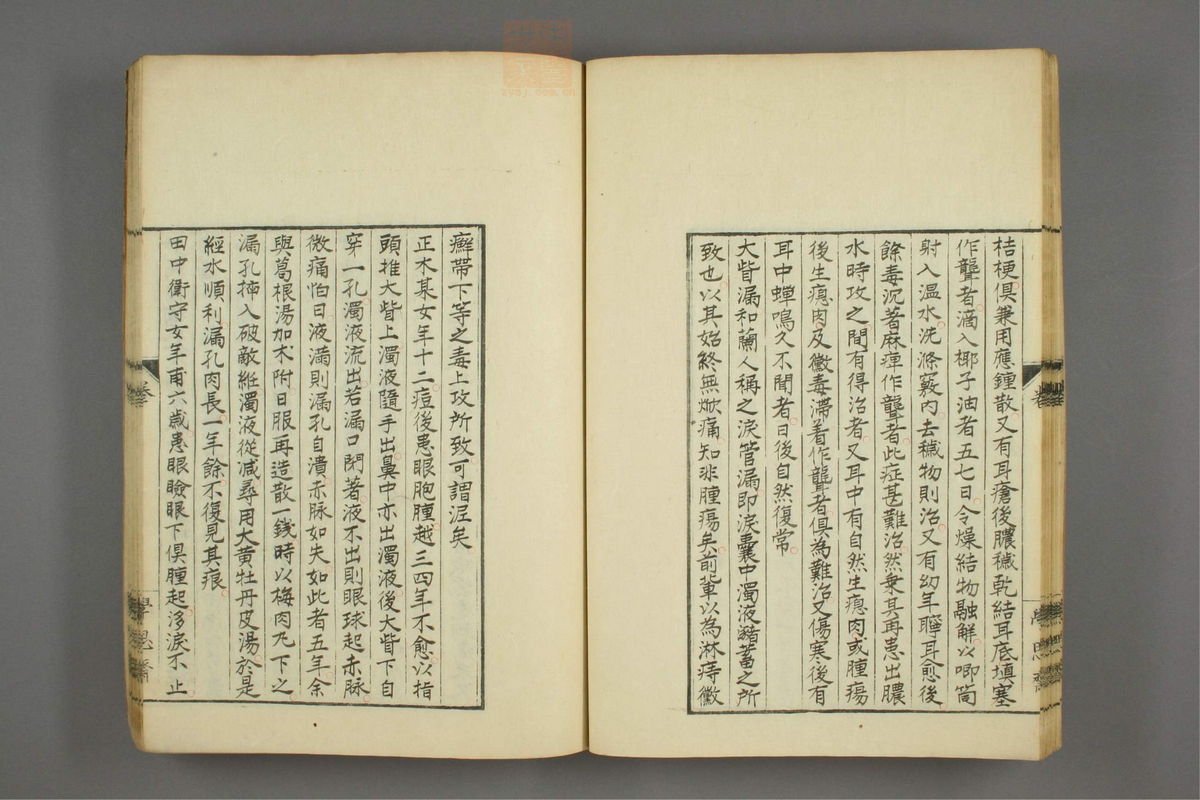 桔梗俱兼用應鍾散又有耳瘡後膿穢乾結耳底填塞
作聾者滴入椰子油者五七日令燥結物融解以唧筒
射入溫水洗滌竅內去穢物則治又有幼年聤耳愈後
餘毒沉著麻痺作聾者此症甚難治然乗其再患出膿
水時攻之間有得治者又耳中有自然生瘜肉或腫瘍
後生瘜肉及黴毒滯着作聾者俱為難治又傷寒後有
耳中蟬鳴久不聞者日後自然復常
大眥漏和蘭人稱之淚管漏即淚囊中濁液瀦蓄之所
致也以其始終無焮痛知非腫瘍矣前輩以為淋痔黴
癬帶下等之毒上攻所致可謂渥矣
正木某女年十二痘後患眼胞腫越三四年不愈以指
頭推大眥上濁液隨手出鼻中亦出濁液後大眥下自
穿一孔濁液流出若漏口閉著液不出則眼球起赤脉
微痛怕日液滿則漏孔自潰赤脉如失如此者五年余
與葛根湯加朮附日服再造散一錢時以梅肉丸下之
漏孔揷入破敵維濁液從减尋用大黄牡丹皮湯於是
經水順利漏孔肉長一年餘不復見其痕
田中衛守女年甫六歲患眼瞼眼下俱腫起淚不止
卷
學思齋
zysj.com.cn